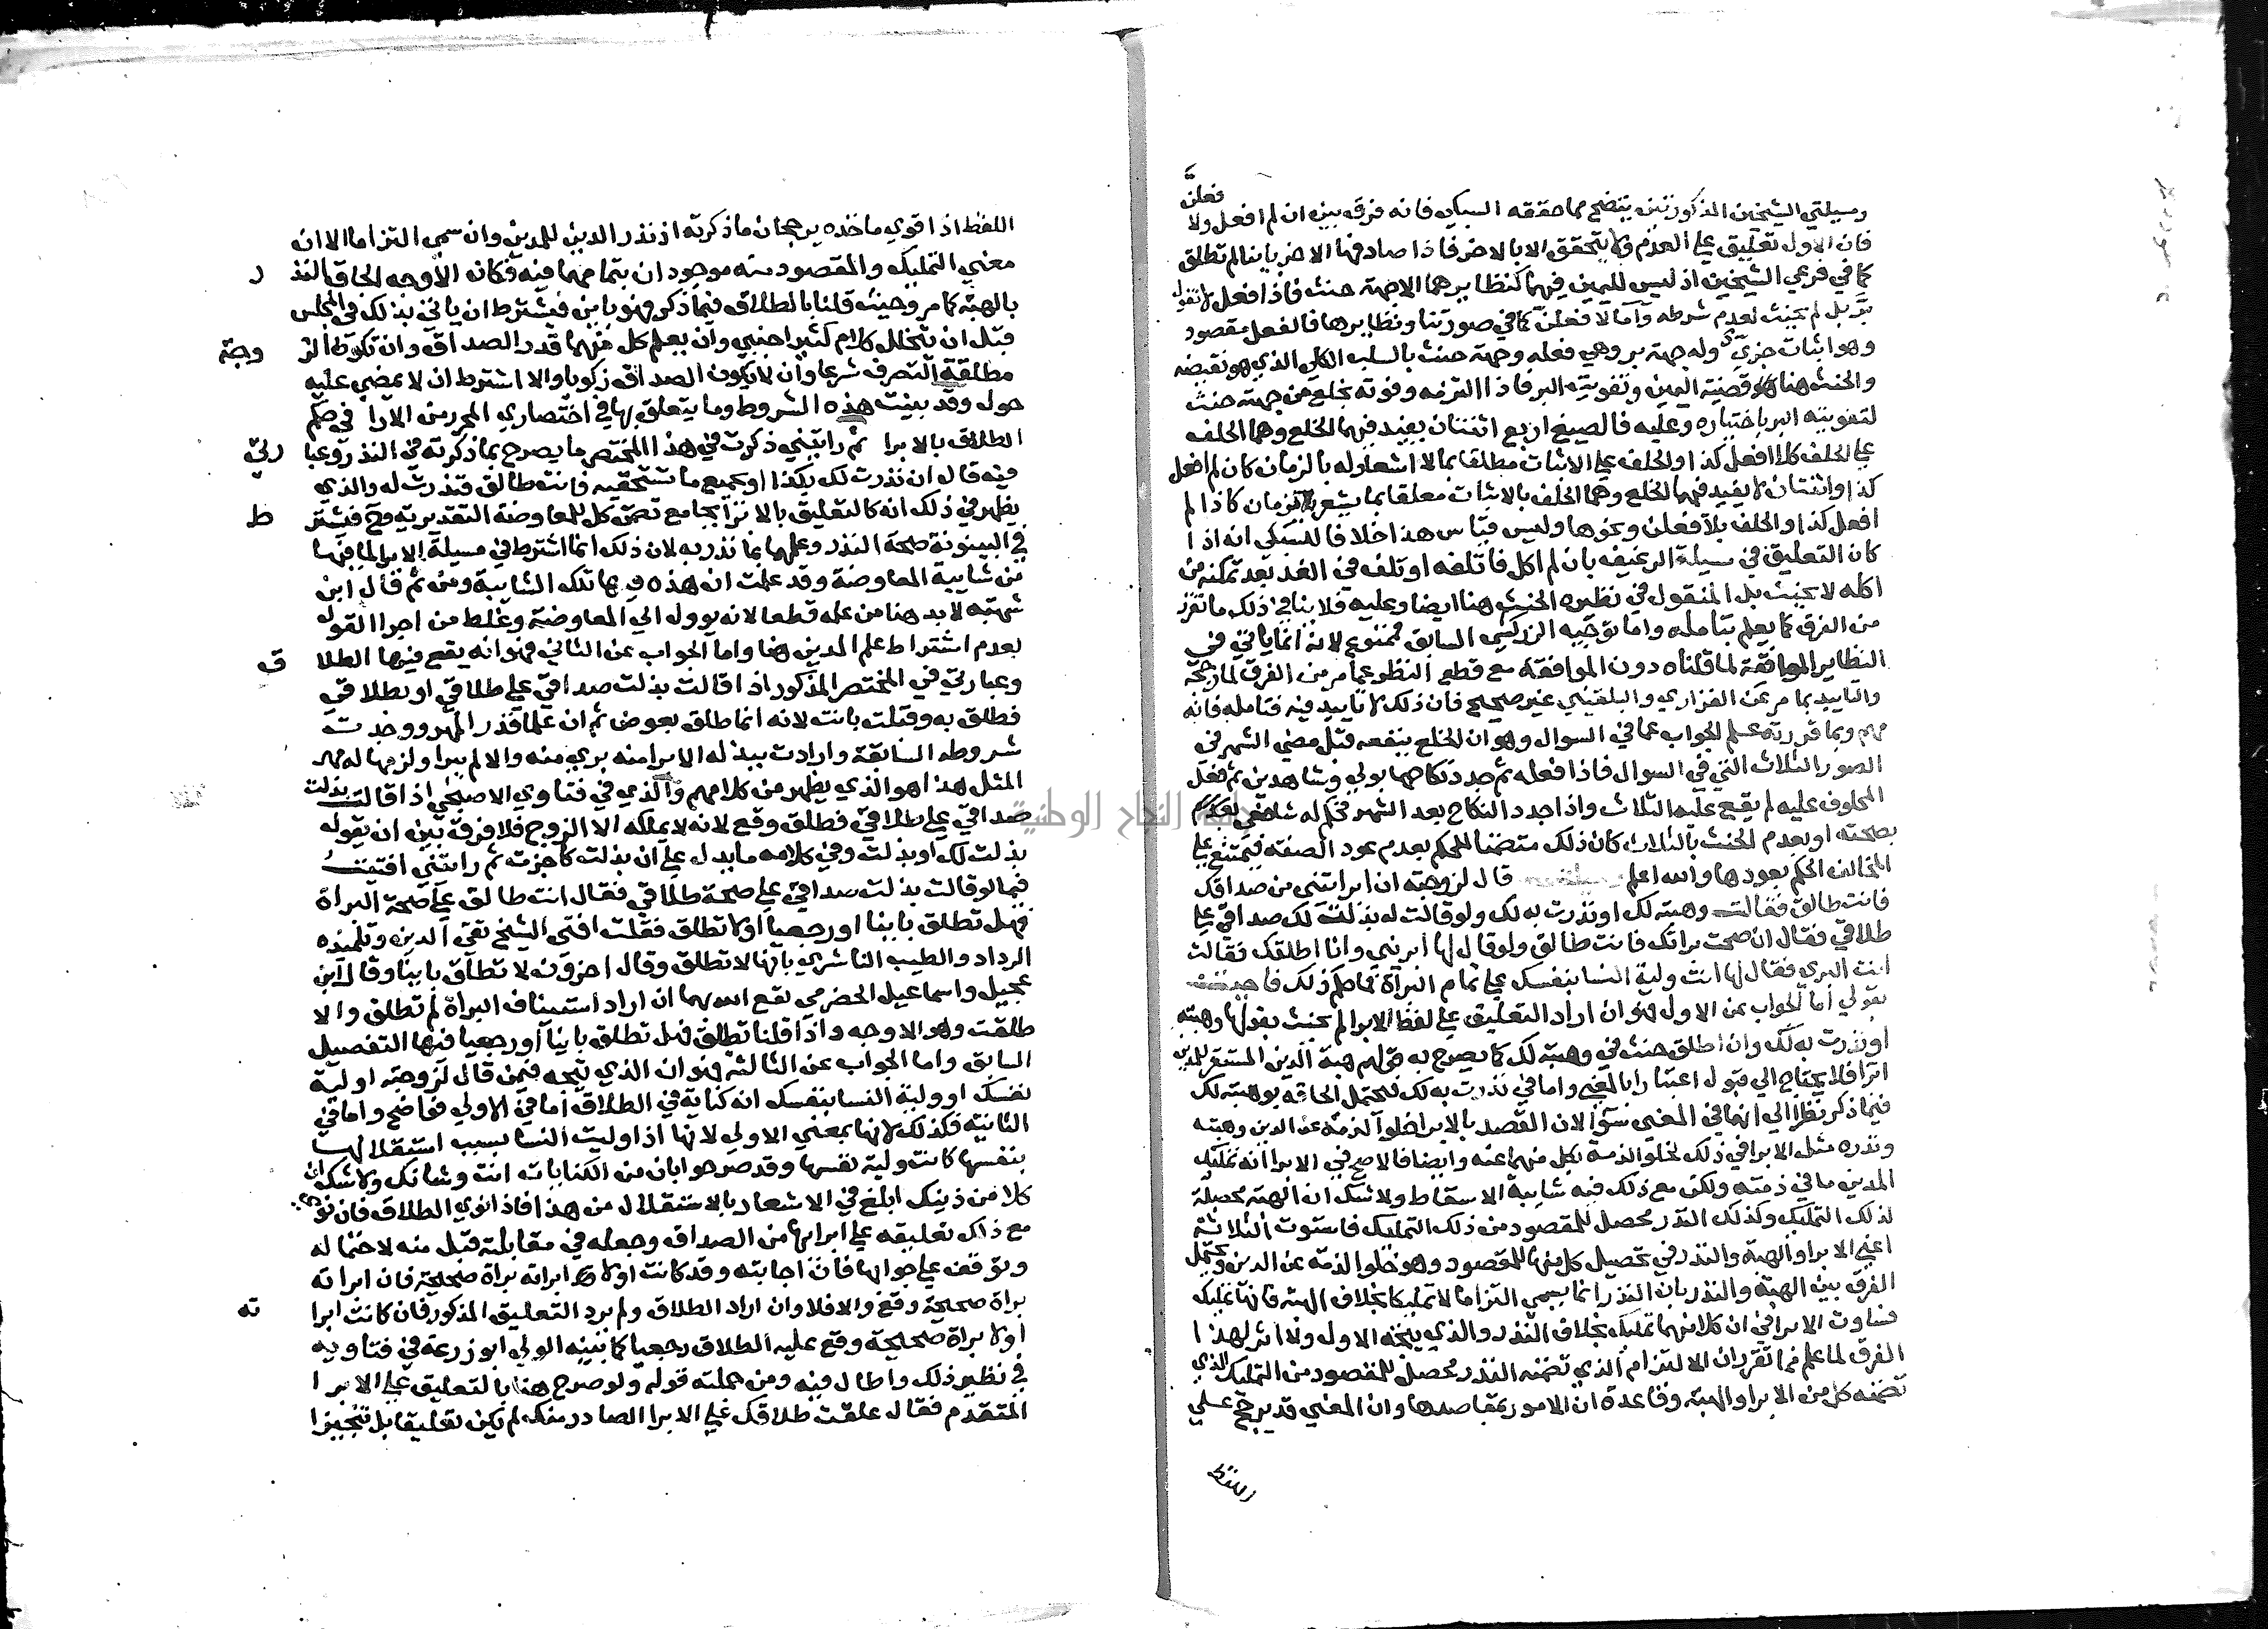 ومسيلتي الشيخين المذكورتين يتضح مما حققه السبكي فانه فرق بين ان لم افعل ولا فعلنّ
فان الاول تعليق على العدم ولا يتحقق الا بالاخر فاذا صادفها الاخر باينا لم تطلق
كما في فرعي الشيخين اذ ليس لليمين فيهما كنظايرهما الا جهة حنث فاذا فعل لا تقول
بَرَّ بل لم يحنث لعدم شرطه وأما لافعلن كما في صورتنا ونظايرها فالفعل مقصود
وهو اثبات جزيّ وله جهة بر وهي فعله وجهة حنث بالسلب الكلي الذي هو نقيضه
والحنث هنا هو قضية اليمين وتفويته البر فاذا التزمه وفوته بخلع من جهته حنث
لتفويته البر باختياره وعليه فالصيغ اربع اثنتان يفيد فيهما الخلع وهما الحلف
على الحلف كلا افعل كذا والحلف على الاثبات مطلقا بما لا اشعار له بالزمان كان لم افعل
كذا واثنتان لا يفيد فيهما الخلع وهما الحلف بالاثبات معلقا بما يشعر بالزمان كاذا لم
افعل كذا والحلف بلا فعلن ونحوها وليس قياس هذا خلافا للسبكي انه اذا
كان التعليق في مسيلة الرغيف بان لم اكل فاتلفه او تلف في الغد بعد تمكنه من
اكله لا يحنث بل المنقول في نظيره الحنث هنا ايضا وعليه فلا ينافي ذلك ما تقرر
من الفرق كما يعلم بتامله واما توجيه الزركشي السابق فممنوع لانه انما ياتي في
النظاير الموافقة لما قلناه دون الموافقة مع قطع النظر عما مر من الفرق لما رجحه
والتاييد بما مر عن الفزاري والبلقيني غير صحيح فان ذلك لا تاييد فيه فتامله فانه
مهم وبما قررته علم الجواب عما في السوال وهو ان الخلع ينفعه قبل مضي الشهر في
الصور الثلاث التي في السوال فاذا فعله ثم جدد نكاحها بولي وشاهدين ثم فعل
المحلوف عليه لم يقع عليه الثلاث واذا جدد النكاح بعد الشهر فحكم له شافعي
بصحته او بعدم الحنث بالثلاث كان ذلك متضمنا للحكم بعدم عود الصفة فيمتنع على
المخالف الحكم بعودها والله اعلم قال لزوجته ان ابراتني من صداقك
فانت طالق فقالت وهبته لك او نذرت به لك ولو قالت له بذلت لك صداقي على
طلاقي فقال ان صحت براتك فانت طالق ولو قال لها ابريني وانا اطلقك فقالت
انت البري فقال لها انت ولية النسا بنفسك على تمام البرآة فما حكم ذلك فاجبت
بقولي أما الجواب عن الاول فهو ان اراد التعليق على لفظ الابرا لم يحنث بقولها وهبته
او نذرت به لك وان اطلق حنث في وهبته لك كما يصرح به قولهم هبة الدين المستقر للمدين
ابرا فلا يحتاج الي قبول اعتبارا بالمعنى واما في نذرت به لك فيحتمل الحاقه بوهبته لك
فيما ذكر نظرا الي انهما في المعنى سوآ لان القصد بالابرا خلو الذمة عن الدين وهبته
ونذره مثل الابرا في ذلك لخلو الذمة بكل منهما عنه وايضا فالاصح في الابرا انه تمليك
المدين ما في ذمته ولكن مع ذلك فيه شايبة الاسقاط ولا شك ان الهبة محصلة
لذلك التمليك وكذلك النذر محصل للمقصود من ذلك التمليك فاستوت الثلاثة
اعني الابرا والهبة والنذر في تحصيل كل منها للمقصود وهو خلوا الذمة عن الدين ويحتمل
الفرق بين الهبة والنذر بان النذر انما يسمي التزاما لا تمليكا بخلاف الهبة فانها تمليك
فساوت الابرا في ان كلا منهما تمليك بخلاف النذر والذي يتجه الاول ولا اثر لهذا
الفرق لما علم مما تقرر ان الالتزام الذي تضمنه النذر محصل للمقصود من التمليك الذي
تضمنه كل من الابرا والهبة وقاعدة ان الامور بمقاصدها وان المعني قد يرجح علي
اللفظ
اللفظ اذا قوي ماخذه يرجحان ما ذكرته اذ نذر الدين للمدين وان سمي التزاما الا ان
معني التمليك والمقصود منه موجود ان بتمامهما فيه فكان الأوجه الحاق النذر
بالهبة كما مر وحيث قلنا بالطلاق فيما ذكر فهو باين فيشترط ان ياتي بذلك في المجلس
قبل ان يتخلل كلام كثير اجنبي وأن يعلم كل منهما قدر الصداق وان تكون الزوجة
مطلقة التصرف شرعا وأن لا يكون الصداق زكويا والا اشترط ان لا يمضي عليه
حول وقد بينت هذه الشروط وما يتعلق بها في اختصاري المحرر من الارا في حكم
الطلاق بالابرا ثم رايتني ذكرت في هذا المختصر ما يصرح بما ذكرته في النذر وعبارتي
فيه قال ان نذرت لك بكذا او بجميع ما تستحقيه فانت طالق فنذرت له والذي
يظهر في ذلك انه كالتعليق بالابرآ بجامع تضمن كل للمعاوضة التقديرية وح فيشترط
في البينونة صحة النذر وعلمها بما نذر به لان ذلك انما اشترط في مسيلة الابرا لما فيها
من شايبة المعاوضة وقد علمت ان هذه فيها تلك الشايبة ومن ثم قال ابن
شهبة لا بد هنا من علمه قطعا لانه يوول الي المعاوضة وغلط من اجرا القول
بعدم اشتراط علم المدين هنا واما الجواب عن الثاني فهو انه يقع فيها الطلاق
وعبارتي في المختصر المذكور اذا قالت بذلت صداقي علي طلاقي او بطلاقي
فطلق به وقبلت بانت لانه انما طلق بعوض ثم ان علما قدر المهر ووجدت
شروطه السابقة وارادت ببذله الابرا منه بري منه والا لم يبرا ولزمها له مهر
المثل هذا هو الذي يظهر من كلامهم والذي في فتاوي الاصبحي اذا قالت بذلت
صداقي علي طلاقي فطلق وقع لانه لا يملكه الا الزوج فلا فرق بين ان يقول
بذلت لك او بذلت وفي كلامه ما يدل علي ان بذلت كاجزت ثم رايتني افتيت
فيما لو قالت بذلت صداقي علي صحة طلاقي فقال انت طالق على صحة البراة
فهل تطلق باينا او رجعيا او لا تطلق فقلت افتى الشيخ تقي الدين وتلميذه
الرداد والطيب الناشري بانها لا تطلق وقال اخرون لا تطلق باينا وقال ابن
عجيل واسماعيل الحضرمي نفع الله بهما ان اراد استيناف البراة لم تطلق والا
طلقت وهو الاوجه واذا قلنا تطلق فهل تطلق باينا أو رجعيا فيها التفصيل
السابق واما الجواب عن الثالثة فهو ان الذي يتجه فيمن قال لزوجته او لية
نفسك او ولية النسا بنفسك انه كناية في الطلاق أما في الاولي فواضح واما في
الثانية فكذلك لانها بمعني الاولي لانها اذا وليت النسا بسبب استقلالها
بنفسها كانت ولية نفسها وقد صرحوا بان من الكنايات انت وشانك ولا شك ان
كلا من ذينك ابلغ في الاشعار بالاستقلال من هذا فاذا نوي الطلاق فان نوي
مع ذلك تعليقه علي ابرايها من الصداق وجعله في مقابلته قبل منه لاحتماله
وتوقف علي جوابها فان اجابته وقد كانت اولا ابراته براة صحيحة فان ابراته
براة صحيحة وقع والا فلا وان اراد الطلاق ولم يرد التعليق المذكور فان كانت ابراته
اولا براة صحيحة وقع عليه الطلاق رجعيا كما بينه الولي ابو زرعة في فتاويه
في نظير ذلك واطال فيه ومن جملته قوله ولو صرح هنا بالتعليق علي الابرا
المتقدم فقال علقت طلاقك على الابرا الصادر منك لم يكن تعليقا بل تنجيزا